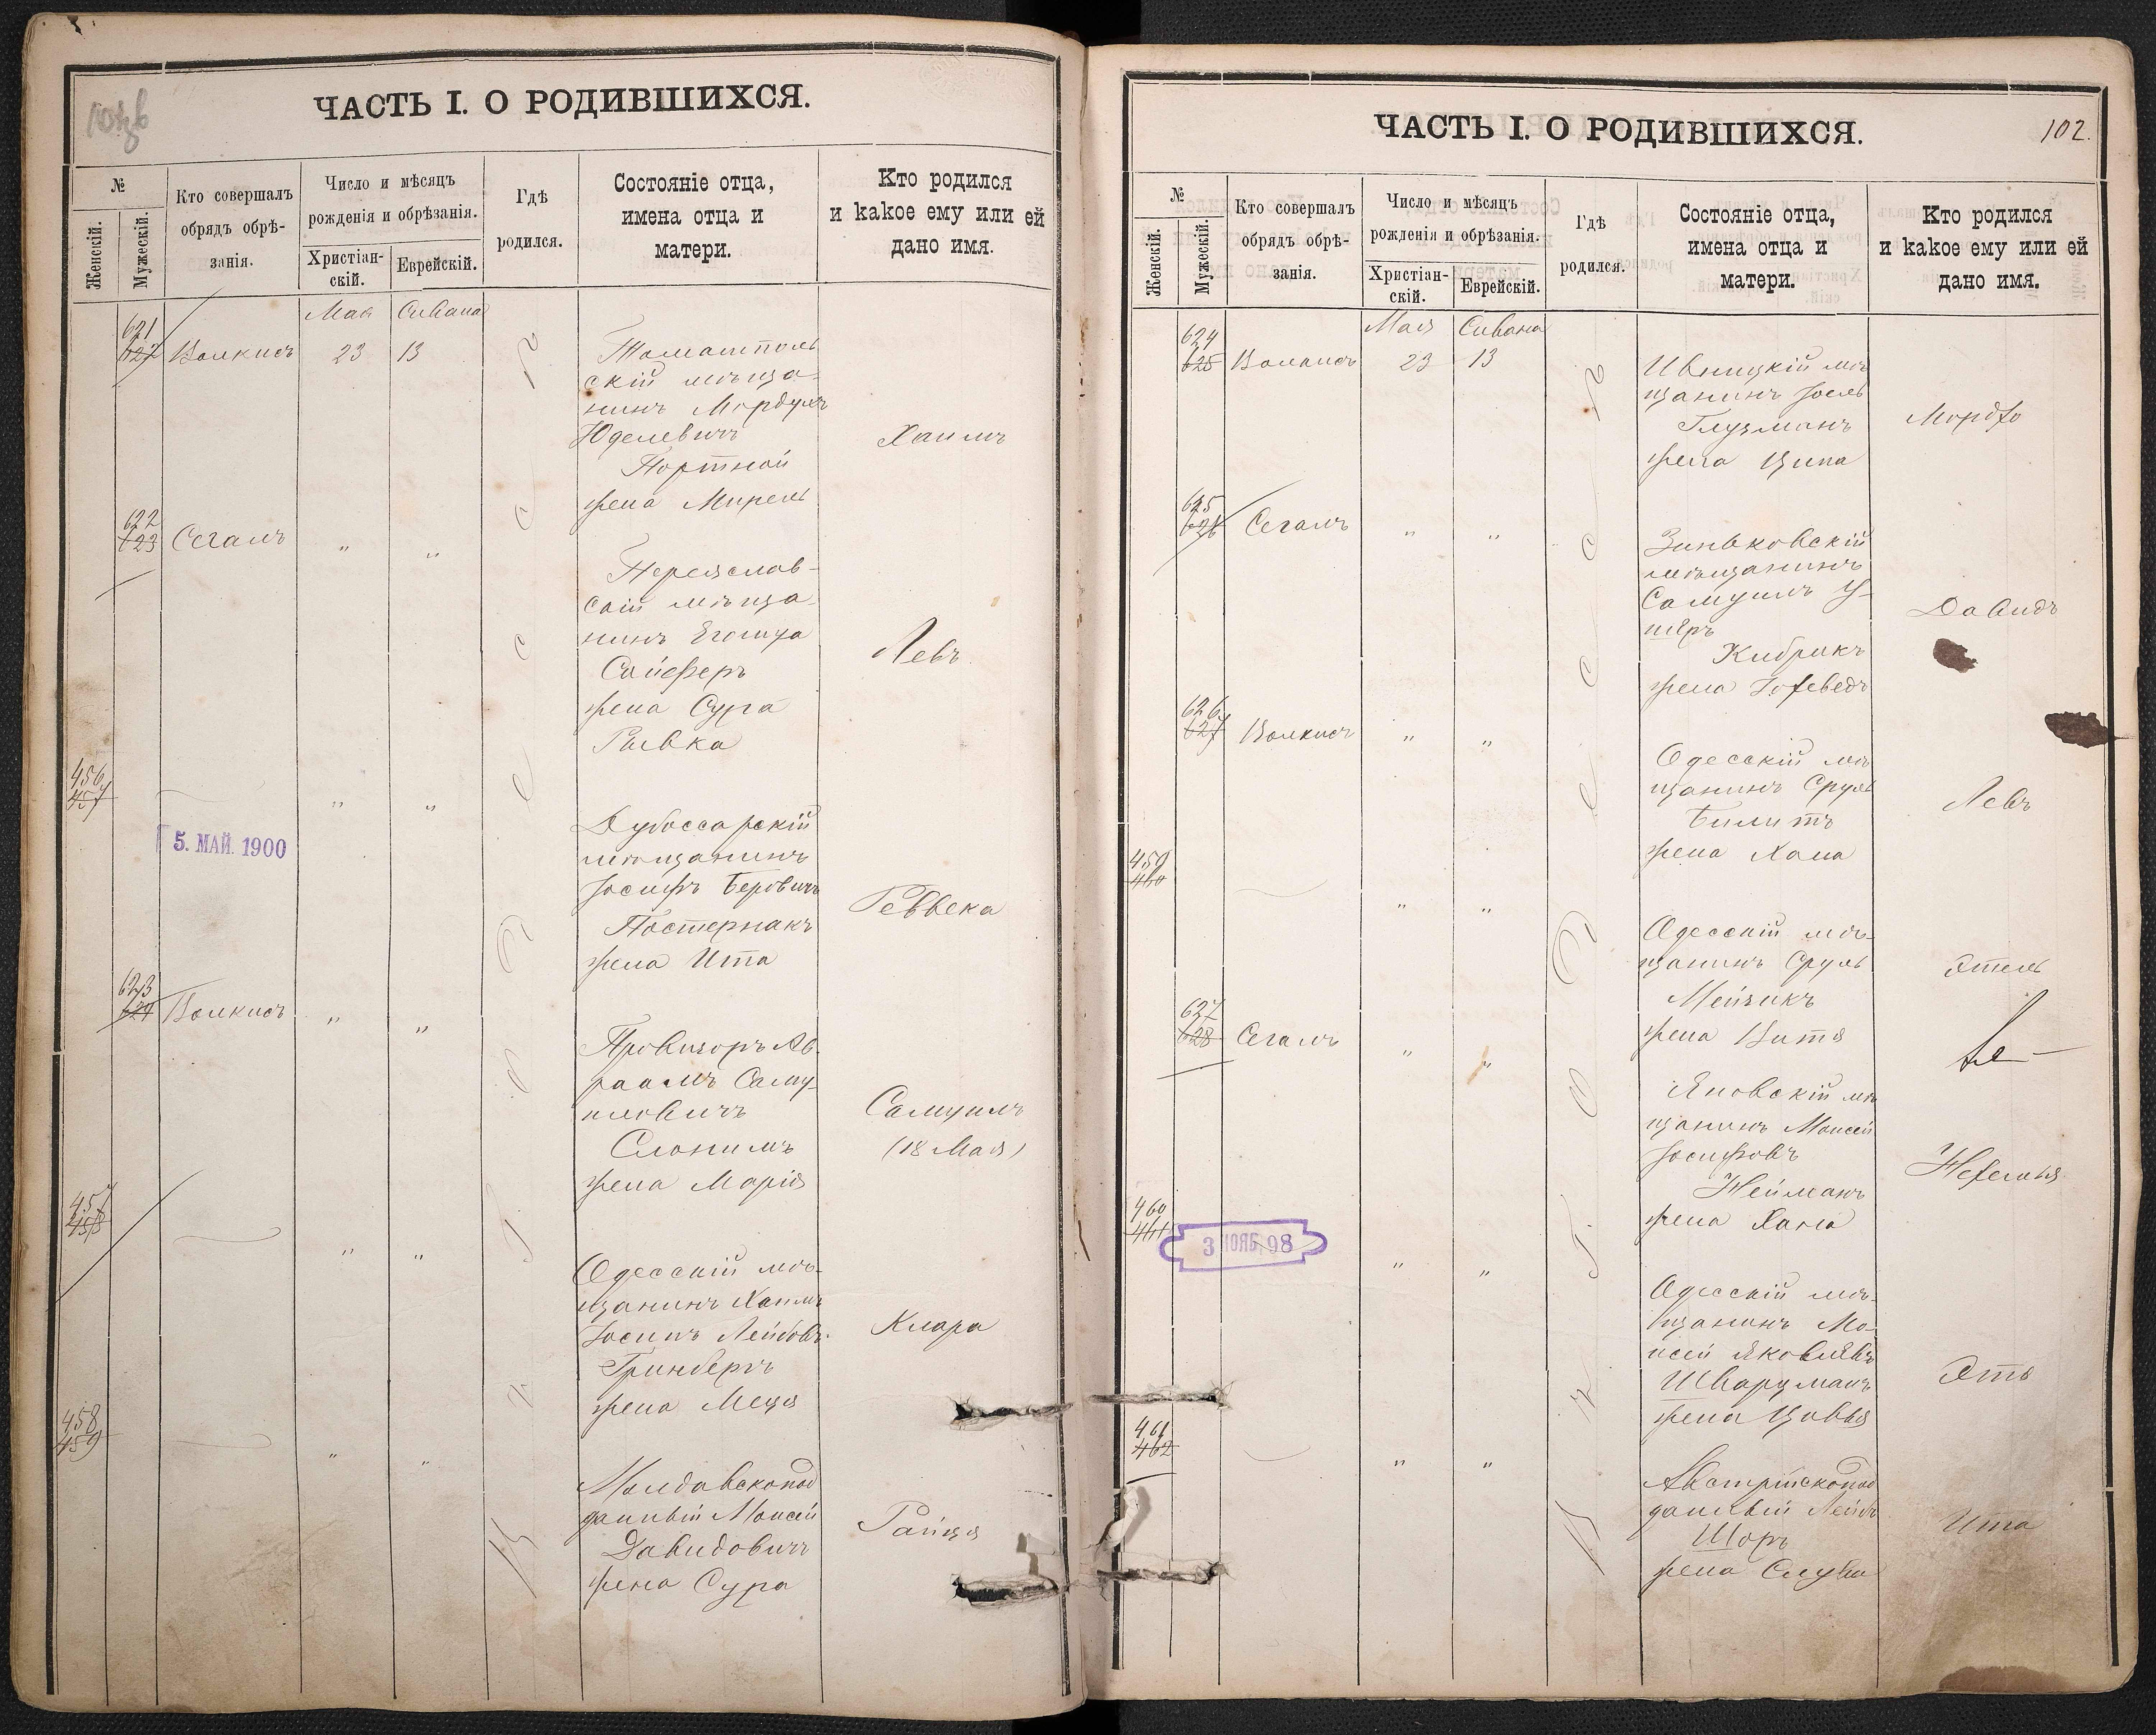 ЧАСТЬ I. О РОДИВШИХСЯ.
№
Женскій.
Мужескій.
Кто совершалъ
обрядъ обрѣ-
занія.
Число и мѣсяцъ
рожденія и обрѣзанія.
Христіан-
скій.
Еврейскій.
Гдѣ
родился.
Состояніе отца,
имена отца и
матери.
Кто родился
и какое ему или ей
дано имя.
Мая Сивана
621
Волкисъ 23 13
Томашполь
скій мѣща-
нинъ Мордухъ
Юделевичъ
Портной
жена Мирель
Хаимъ
622
623
Сегалъ " "
Переяслав-
скій мѣща-
нинъ Егошуа
Сойферъ
жена Сура
Рывка
Левъ
456
457
" "
5. МАЙ. 1900
Дубоссарскій
мѣщанинъ
Іосифъ Беровичъ
Постернакъ
жена Ита
Реввека
623
624
Волкисъ " "
Провизоръ Ав-
раамъ Саму-
иловичъ
Слонимъ
жена Марія
Самуилъ
(18 Мая)
457
458
" "
Одесскій мѣ-
щанинъ Хаимъ
Іосипъ Лейбовъ
Гринбергъ
жена
Клара
458
459
" "
Молдавскопод
данный Моисей
Давидовичъ
жена Сура
Райця
въ г. Одессѣ
ЧАСТЬ I. О РОДИВШИХСЯ.
102.
№
Женскій.
Мужескій.
Кто совершалъ
обрядъ обрѣ-
занія.
Число и мѣсяцъ
рожденія и обрѣзанія.
Христіан-
скій.
Еврейскій.
Гдѣ
родился.
Состояніе отца,
имена отца и
матери.
Кто родился
и какое ему или ей
дано имя.
Мая Сивана
624
625
Волкисъ 23 13
мѣ
щанинъ Іосль
Глузманъ
жена Ципа
Мордко
625
626
Сегалъ " "
Зиньковскій
мѣщанинъ
Самуилъ У-
шеръ
Кибрикъ
жена Іохеведъ
Давидъ
626
627
Волкисъ " "
Одесскій мѣ
щанинъ Сруль
Билитъ
жена Хана
Левъ
459
460
" "
Одесскій мѣ-
щанинъ Сруль
Мейзикъ
жена
Этель
627
628
Сегалъ " "
Яновскій мѣ
щанинъ Моисей
Іосифовъ
Нейманъ
жена Хана
Нехемья
460
461
3 НОЯБ. 98
" "
Одесскій мѣ-
щанинъ Мо-
исей Яковлевъ
Шварцманъ
жена Цивья
Этя
461
462
" "
Австрійскопод
данный Лейбъ
Шоръ
жена
Ита